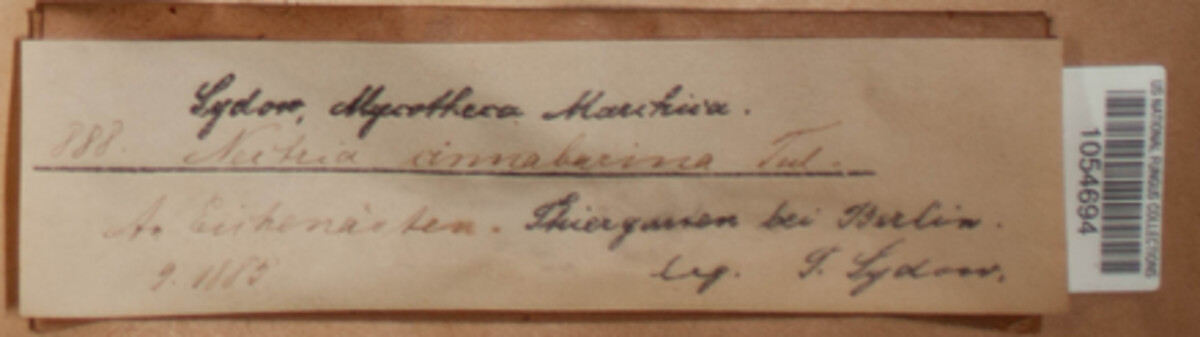 Sydow, Mycotheca Marchica.
888. Nectria cinnabarina Tul.
An Eichenästen. Thiergarten bei Berlin.
9. 1885
leg. P. Sydow.
US NATIONAL FUNGUS COLLECTIONS
1054694